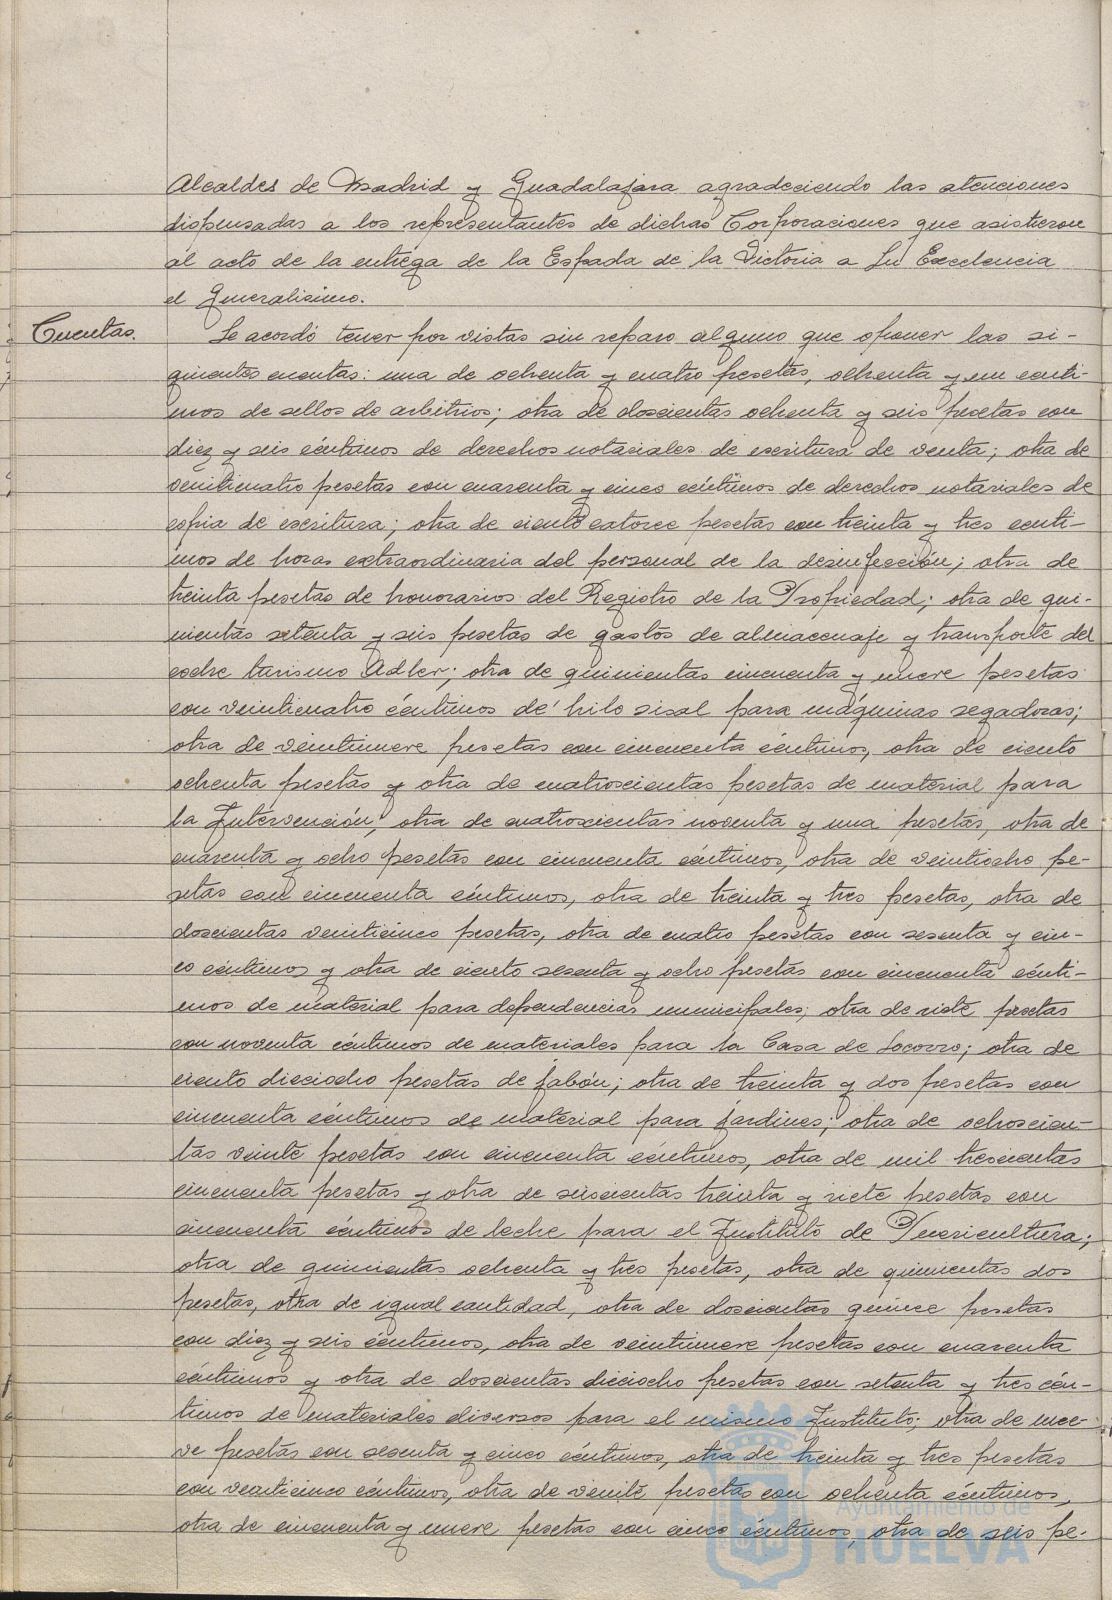 Alcaldes de Madrid y Guadalajara agradeciendo las atenciones
dispensadas a los representantes de dichas Corporaciones que asistieron
al acto de la entrega de la Espada de la Victoria a Su Excelencia
el Generalisimo.
Cuentas.
Se acordó tener por vistas sin reparo alguno que oponer las si-
guientes cuentas: una de ochenta y cuatro pesetas, ochenta y un cénti-
mos de sellos de arbitrios; otra de doscientas ochenta y seis pesetas con
diez y seis céntimos de derechos notariales de escritura de venta; otra de
veinticuatro pesetas con cuarenta y cinco céntimos de derechos notariales de
copia de escritura; otra de ciento catorce pesetas con treinta y tres cénti-
mos de horas extraordinaria del personal de la desinfección; otra de
treinta pesetas de honorarios del Registro de la Propiedad; otra de qui-
nientas setenta y seis pesetas de gastos de almacenaje y transporte del
coche turismo Adler; otra de quinientas cincuenta y nueve pesetas
con veinticuatro céntimos de hilo sisal para máquinas segadoras;
otra de veintinueve pesetas con cincuenta céntimos, otra de ciento
ochenta pesetas y otra de cuatrocientas pesetas de material para
la Intervención; otra de cuatrocientas noventa y una pesetas, otra de
cuarenta y ocho pesetas con cincuenta céntimos, otra de veintiocho pe-
setas con cincuenta céntimos, otra de treinta y tres pesetas, otra de
doscientas veinticinco pesetas, otra de cuatro pesetas con sesenta y cin-
co céntimos y otra de ciento sesenta y ocho pesetas con cincuenta cénti-
mos de material para dependencias municipales; otra de siete pesetas
con noventa céntimos de materiales para la Casa de Socorro; otra de
ciento dieciocho pesetas de jabón; otra de treinta y dos pesetas con
cincuenta céntimos de material para jardines; otra de ochoscien-
tas veinte pesetas con cincuenta céntimos, otra de mil trescientas
cincuenta pesetas y otra de seiscientas treinta y siete pesetas con
cincuenta céntimos de leche para el Instituto de Puericultura;
otra de quinientas ochenta y tres pesetas, otra de quinientas dos
pesetas, otra de igual cantidad, otra de doscientas quince pesetas
con diez y seis céntimos, otra de veintinueve pesetas con cuarenta
céntimos y otra de doscientas dieciocho pesetas con setenta y tres cén-
timos de materiales diversos para el mismo Instituto; otra de nue-
ve pesetas con sesenta y cinco céntimos, otra de treinta y tres pesetas
con veinticinco céntimos, otra de veinte pesetas con ochenta céntimos,
otra de cincuenta y nueve pesetas con cinco céntimos, otra de seis pe-
Ayuntamiento de
HUELVA